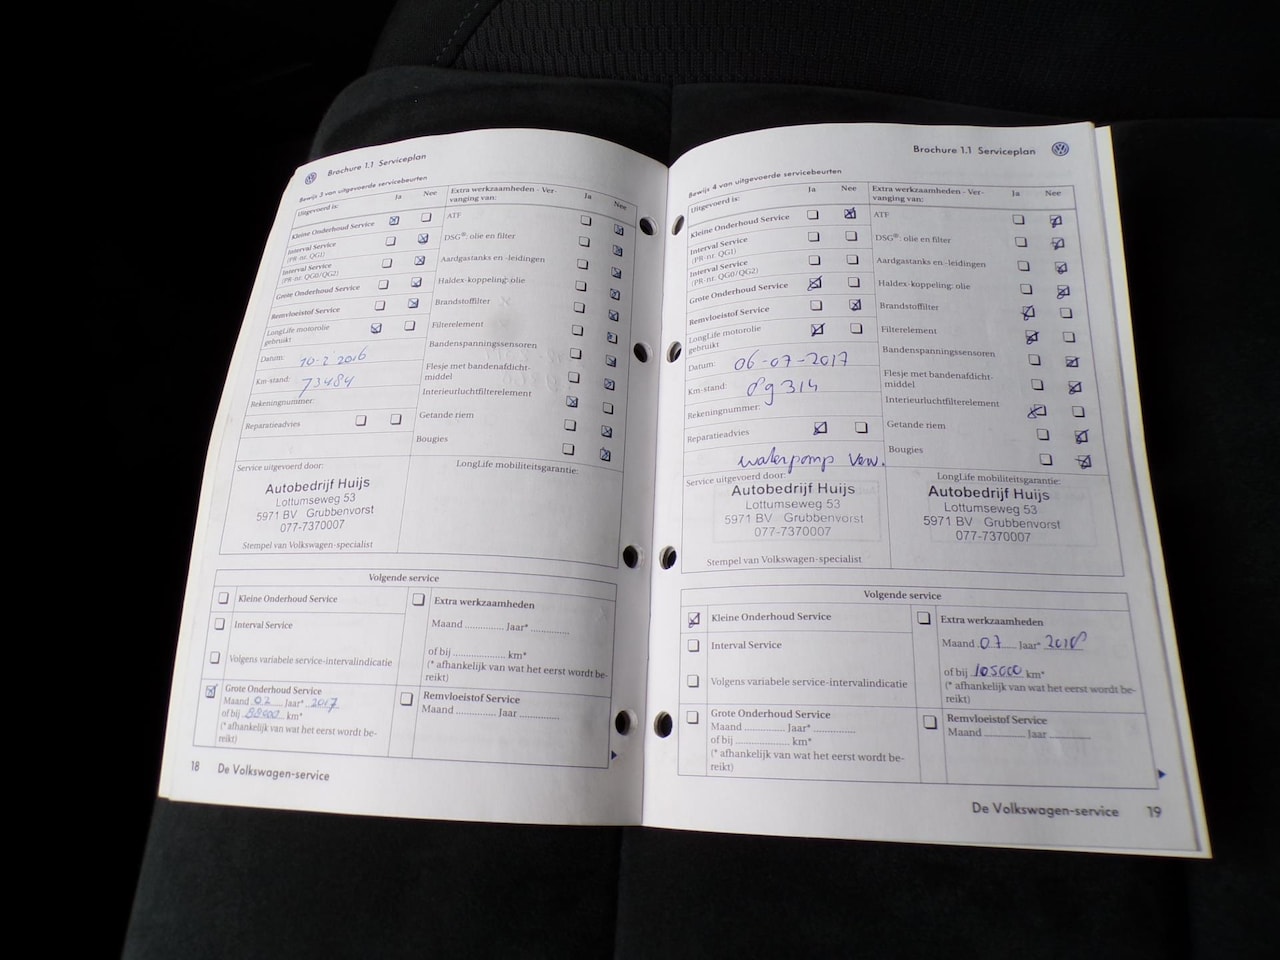 Brochure 1.1 Serviceplan
Bewijs 3 van uitgevoerde servicebeurten
Uitgevoerd is:
Ja
Nee
Kleine Onderhoud Service
Interval Service
(PR-nr. QG1)
Interval Service
(PR-nr. QG0/QG2)
Grote Onderhoud Service
Remvloeistof Service
LongLife motorolie
gebruikt
Datum: 10-2 2016
Km-stand: 73484
Rekeningnummer:
Reparatieadvies
Extra werkzaamheden - Ver-
vanging van:
Ja
Nee
ATF
DSG®: olie en filter
Aardgastanks en -leidingen
Haldex-koppeling: olie
Brandstoffilter
Filterelement
Bandenspanningssensoren
Flesje met bandenafdicht-
middel
Interieurluchtfilterelement
Getande riem
Bougies
Service uitgevoerd door:
Autobedrijf Huijs
Lottumseweg 53
5971 BV Grubbenvorst
077-7370007
Stempel van Volkswagen-specialist
LongLife mobiliteitsgarantie:
Volgende service
Kleine Onderhoud Service
Interval Service
Volgens variabele service-intervalindicatie
Grote Onderhoud Service
Maand 02 Jaar* 2017
of bij 88000 km*
(* afhankelijk van wat het eerst wordt be-
reikt)
Extra werkzaamheden
Maand ............. Jaar* .............
of bij .................... km*
(* afhankelijk van wat het eerst wordt be-
reikt)
Remvloeistof Service
Maand ............. Jaar .............
18 De Volkswagen-service
Brochure 1.1 Serviceplan
Bewijs 4 van uitgevoerde servicebeurten
Uitgevoerd is:
Ja
Nee
Kleine Onderhoud Service
Interval Service
(PR-nr. QG1)
Interval Service
(PR-nr. QG0/QG2)
Grote Onderhoud Service
Remvloeistof Service
LongLife motorolie
gebruikt
Datum: 06-07-2017
Km-stand: 89314
Rekeningnummer:
Reparatieadvies
waterpomp Verv.
Extra werkzaamheden - Ver-
vanging van:
Ja
Nee
ATF
DSG®: olie en filter
Aardgastanks en -leidingen
Haldex-koppeling: olie
Brandstoffilter
Filterelement
Bandenspanningssensoren
Flesje met bandenafdicht-
middel
Interieurluchtfilterelement
Getande riem
Bougies
Service uitgevoerd door:
Autobedrijf Huijs
Lottumseweg 53
5971 BV Grubbenvorst
077-7370007
Stempel van Volkswagen-specialist
LongLife mobiliteitsgarantie:
Autobedrijf Huijs
Lottumseweg 53
5971 BV Grubbenvorst
077-7370007
Volgende service
Kleine Onderhoud Service
Interval Service
Volgens variabele service-intervalindicatie
Grote Onderhoud Service
Maand ............. Jaar* .............
of bij .................... km*
(* afhankelijk van wat het eerst wordt be-
reikt)
Extra werkzaamheden
Maand 07 Jaar* 2018
of bij 105000 km*
(* afhankelijk van wat het eerst wordt be-
reikt)
Remvloeistof Service
Maand ............. Jaar .............
De Volkswagen-service 19